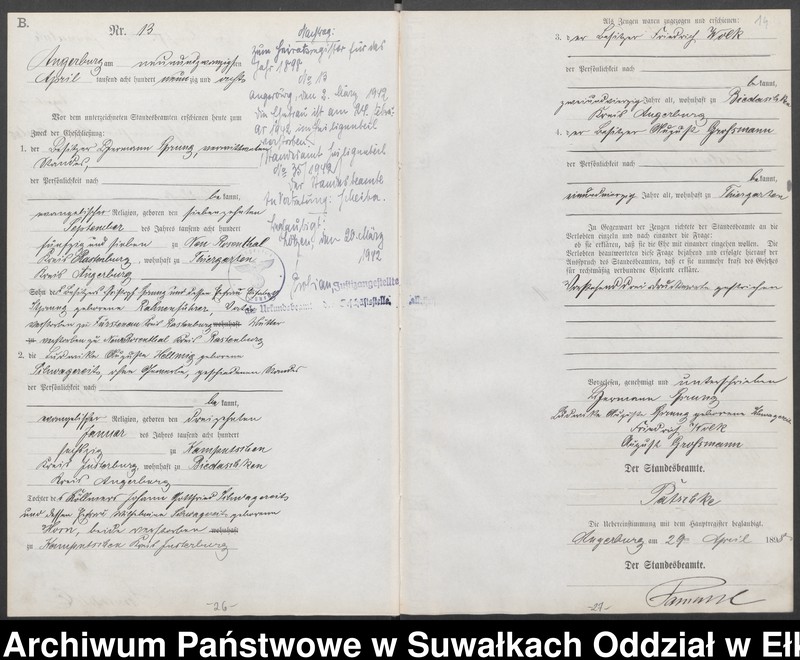 B.
Nr. 13
Angerburg am neunundzwanzigsten
April tausend acht hundert neunzig und acht
Vor dem unterzeichneten Standesbeamten erschienen heute zum
Zweck der Eheschließung:
1. der Besitzer Hermann Sprung, verwittweten
Standes,
der Persönlichkeit nach
be kannt,
evangelischer Religion, geboren den siebenzehnten
September des Jahres tausend acht hundert
fünfzig und sieben zu Neu Rosenthal
Kreis Rastenburg, wohnhaft zu Thiergarten
Kreis Angerburg
Sohn des Besitzers Christoph Sprung und dessen Ehefrau
Sprung geborene
verstorben zu Fürstenau Kreis Rastenburg wohnhaft Mutter
verstorben zu Neu Rosenthal Kreis Rastenburg
2. die Ludwika Auguste Hellmig geborene
ohne Gewerbe, geschiedenen Standes
der Persönlichkeit nach
be kannt,
evangelischer Religion, geboren den dreizehnten
Januar des Jahres tausend acht hundert
sechzig zu Kamputschen
Kreis Insterburg wohnhaft zu Biedaschken
Kreis Angerburg
Tochter des Köllmers Johann Gottfried
und dessen Ehefrau Wilhelmine geborene
Horn, beide verstorben wohnhaft
zu Kamputschen Kreis Insterburg
-26-
Nachtrag:
zum Heiratsregister für das
Jahr 1898.
No 13
Angerburg, den 2. März 1942
Die Ehefrau ist am 24. Febru-
ar 1942 in Heiligenbeil
verstorben.
(Standesamt Heiligenbeil
No 35/1942)
Der Standesbeamte
In Vertretung:
Beglaubigt:
Lötzen, den 20. März
1942
Justizangestellte
als Urkundsbeamt der Geschäftsstelle
19
Als Zeugen waren zugezogen und erschienen:
3. der Besitzer Friedrich Wolk
der Persönlichkeit nach
be kannt,
zweiundvierzig Jahre alt, wohnhaft zu Biedaschken
Kreis Angerburg
4. der Besitzer August Grossmann
der Persönlichkeit nach
be kannt,
einundvierzig Jahre alt, wohnhaft zu Thiergarten
In Gegenwart der Zeugen richtete der Standesbeamte an die
Verlobten einzeln und nach einander die Frage:
ob sie erklären, daß sie die Ehe mit einander eingehen wollen. Die
Verlobten beantworteten diese Frage bejahend und erfolgte hierauf der
Ausspruch des Standesbeamten, daß er sie nunmehr kraft des Gesetzes
für rechtmäßig verbundene Eheleute erkläre.
Vorstehend drei Druckworte gestrichen
Vorgelesen, genehmigt und unterschrieben
Hermann Sprung
Ludwika Auguste Sprung geborene
Friedrich Wolk
August Grossmann
Der Standesbeamte.
Patschke
Die Uebereinstimmung mit dem Hauptregister beglaubigt.
Angerburg am 29. April 1898
Der Standesbeamte.
-27-
Archiwum Państwowe w Suwałkach Oddział w Ełk